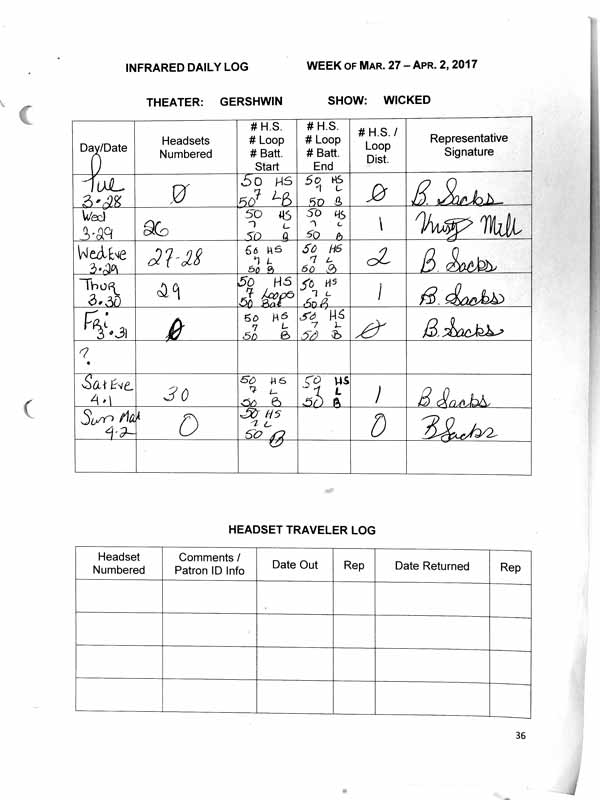 INFRARED DAILY LOG WEEK OF MAR. 27 – APR. 2, 2017
THEATER: GERSHWIN SHOW: WICKED
Day/Date
Headsets
Numbered
# H.S.
# Loop
# Batt.
Start
# H.S.
# Loop
# Batt.
End
# H.S. /
Loop
Dist.
Representative
Signature
Tue
3.28
0
50 HS
7 L
50 B
50 HS
7 L
50 B
0
B. Sacks
Wed
3.29
26
50 HS
7 L
50 B
50 HS
7 L
50 B
1
Wed Eve
3.29
27-28
50 HS
7 L
50 B
50 HS
7 L
50 B
2
B. Sacks
Thur
3.30
29
50 HS
7 Loops
50 Bat
50 HS
7 L
50 B
1
B. Sacks
Fri
3.31
0
50 HS
7 L
50 B
50 HS
7 L
50 B
0
B. Sacks
?
Sat Eve
4.1
30
50 HS
7 L
50 B
50 HS
7 L
50 B
1
B Sacks
Sun Mat
4.2
0
50 HS
7 L
50 B
0
B Sacks
HEADSET TRAVELER LOG
Headset
Numbered
Comments /
Patron ID Info
Date Out
Rep
Date Returned
Rep
36